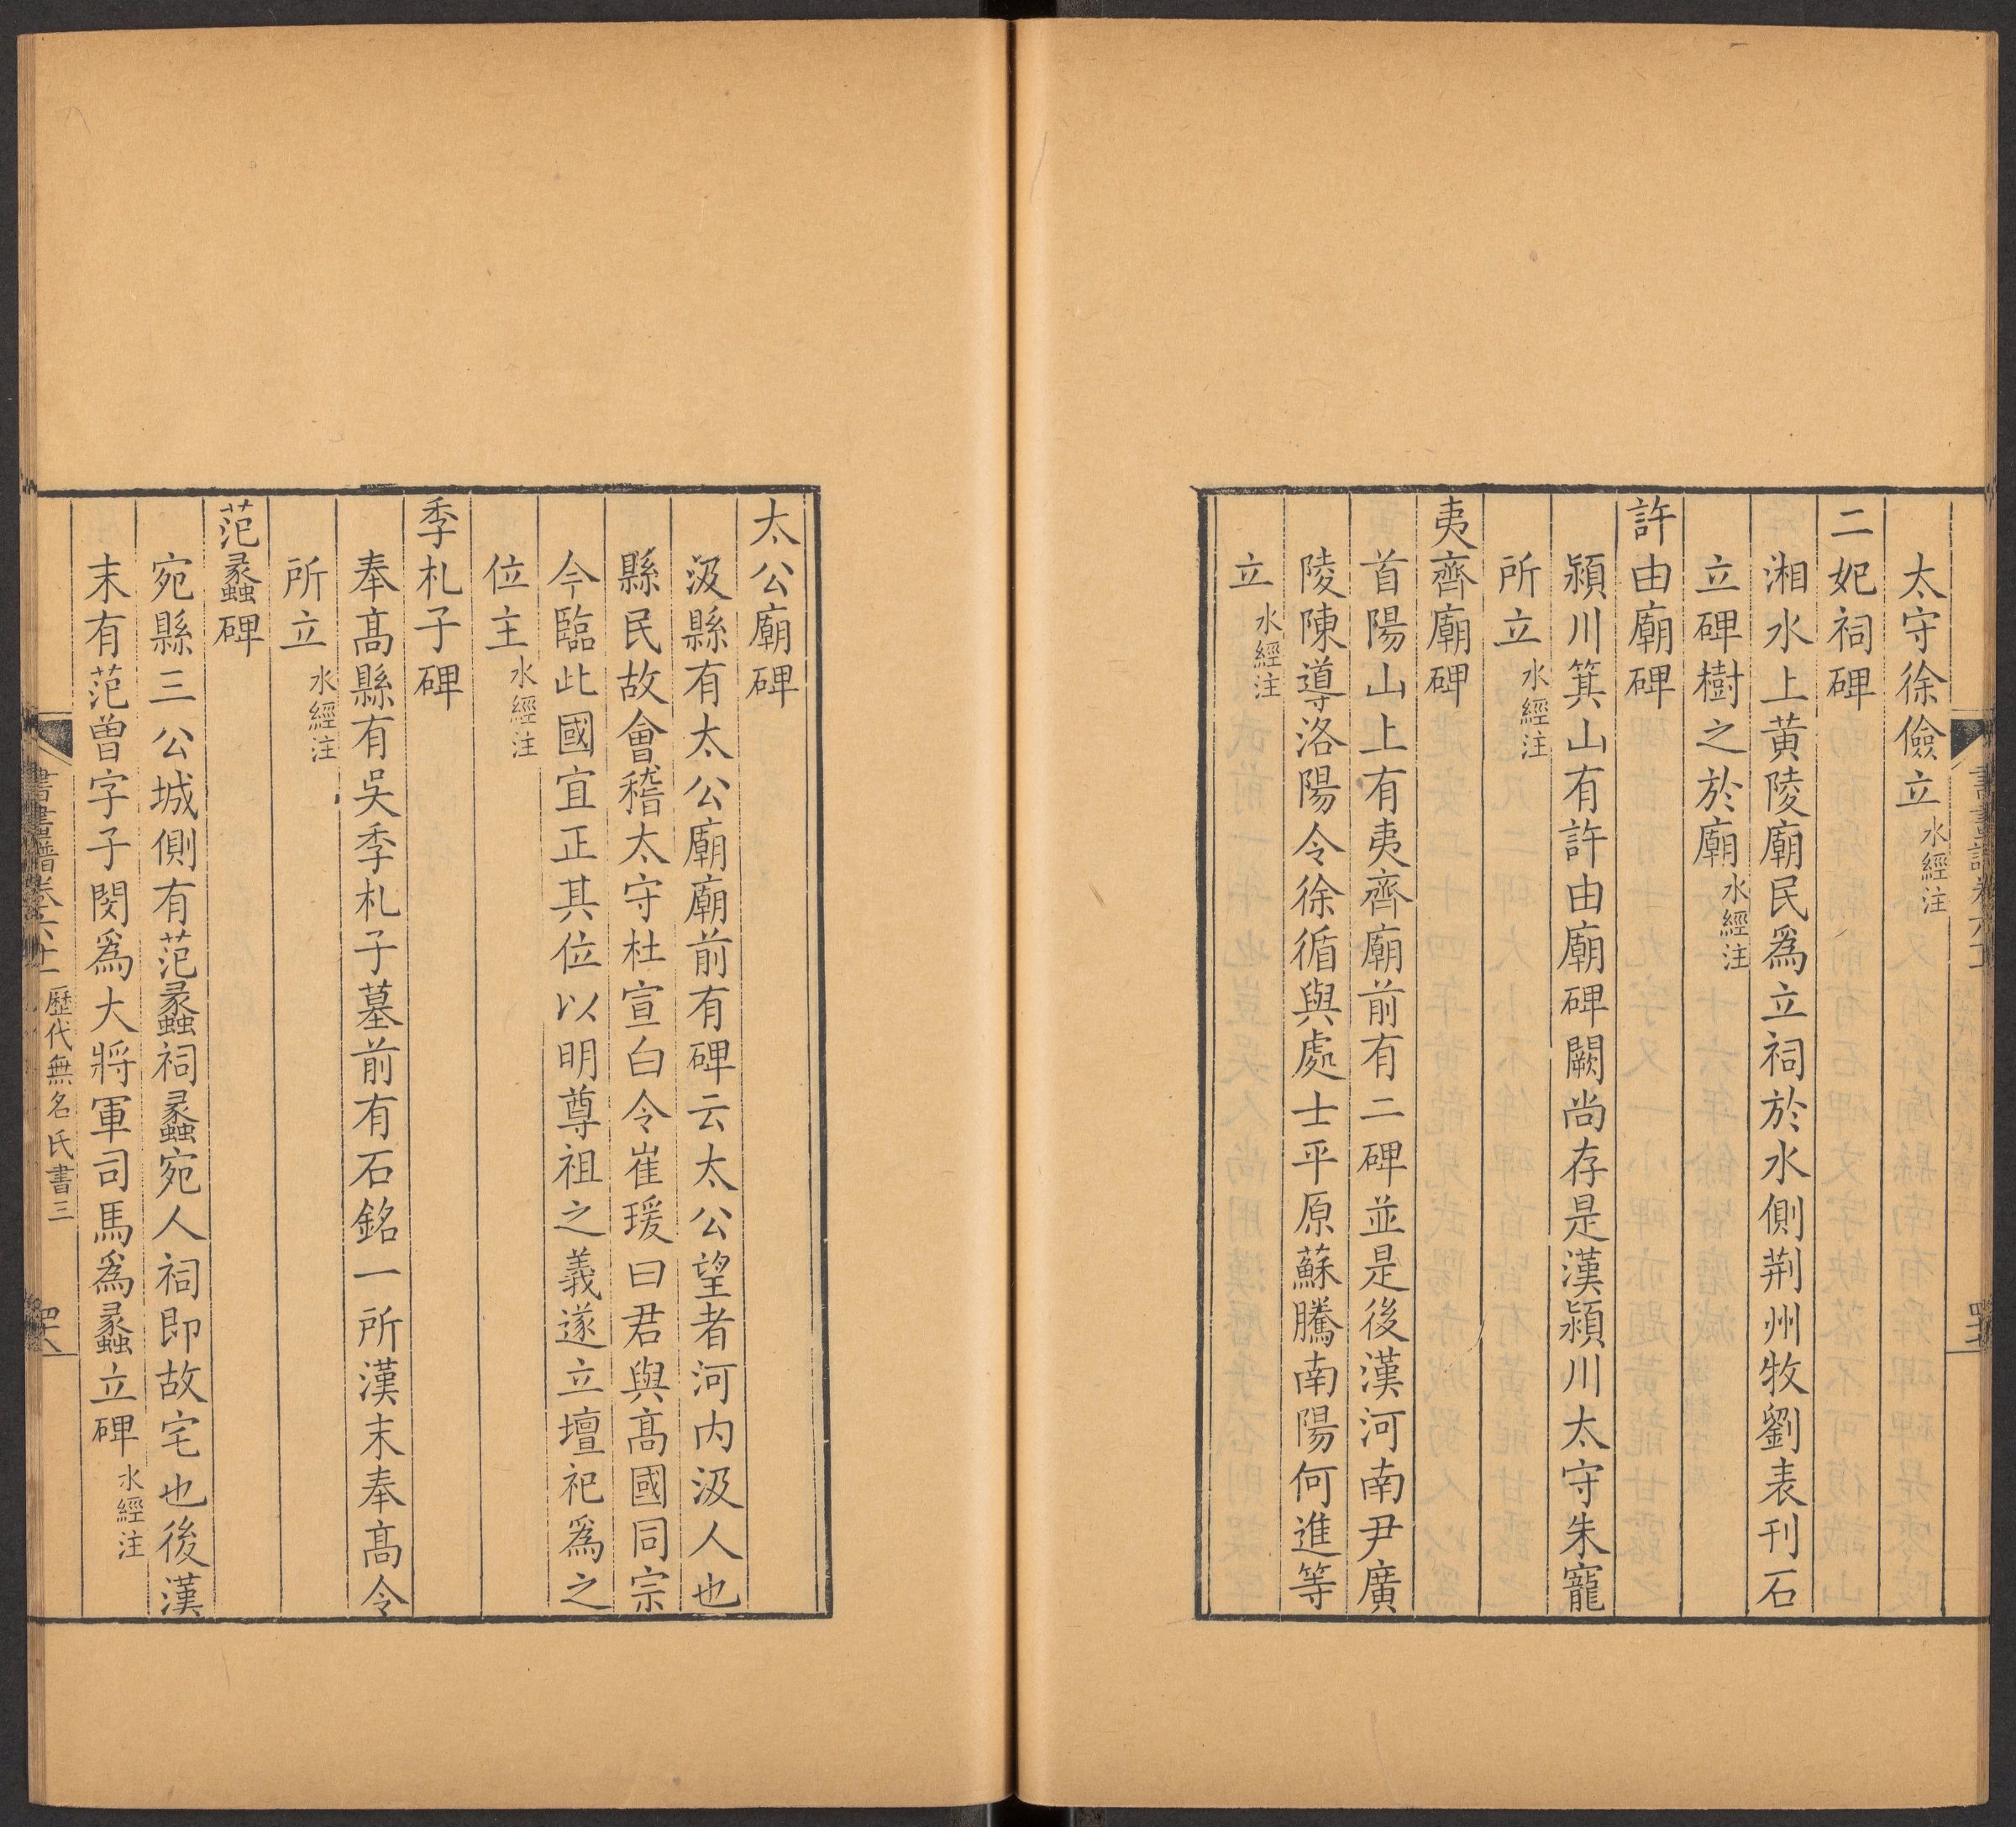 太守徐儉立水經注
二妃祠碑
湘水上黄陵廟民爲立祠於水側荆州牧劉表刊石
立碑樹之於廟水經注
許由廟碑
潁川箕山有許由廟碑闕尚存是漢潁川太守朱寵
所立水經注
夷齊廟碑
首陽山上有夷齊廟前有二碑並是後漢河南尹廣
陵陳導洛陽令徐循與處士平原蘇騰南陽何進等
立水經注
太公廟碑
汲縣有太公廟廟前有碑云太公望者河内汲人也
縣民故會稽太守杜宣白令崔瑗曰君與髙國同宗
今臨此國宜正其位以明尊祖之義遂立壇祀爲之
位主水經注
季札子碑
奉髙縣有吳季札子墓前有石銘一所漢末奉髙令
所立水經注
范蠡碑
宛縣三公城側有范蠡祠蠡宛人祠即故宅也後漢
末有范曾字子閔爲大將軍司馬爲蠡立碑水經注
書畫譜卷六十一 歷代無名氏書三 四十八